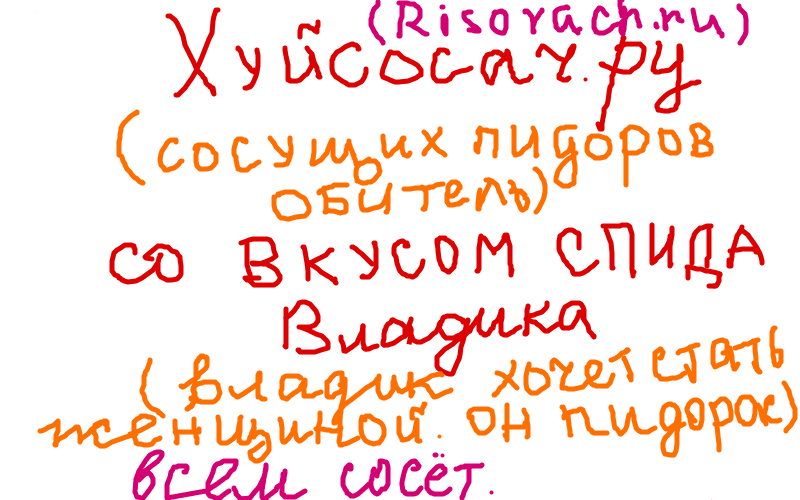 (Risovach.ru)
Хуйсосач.ру
(сосущих пидоров
обитель)
со вкусом СПИДА
Владика
(владик хочет стать
женщиной. он пидорок)
всем сосёт.